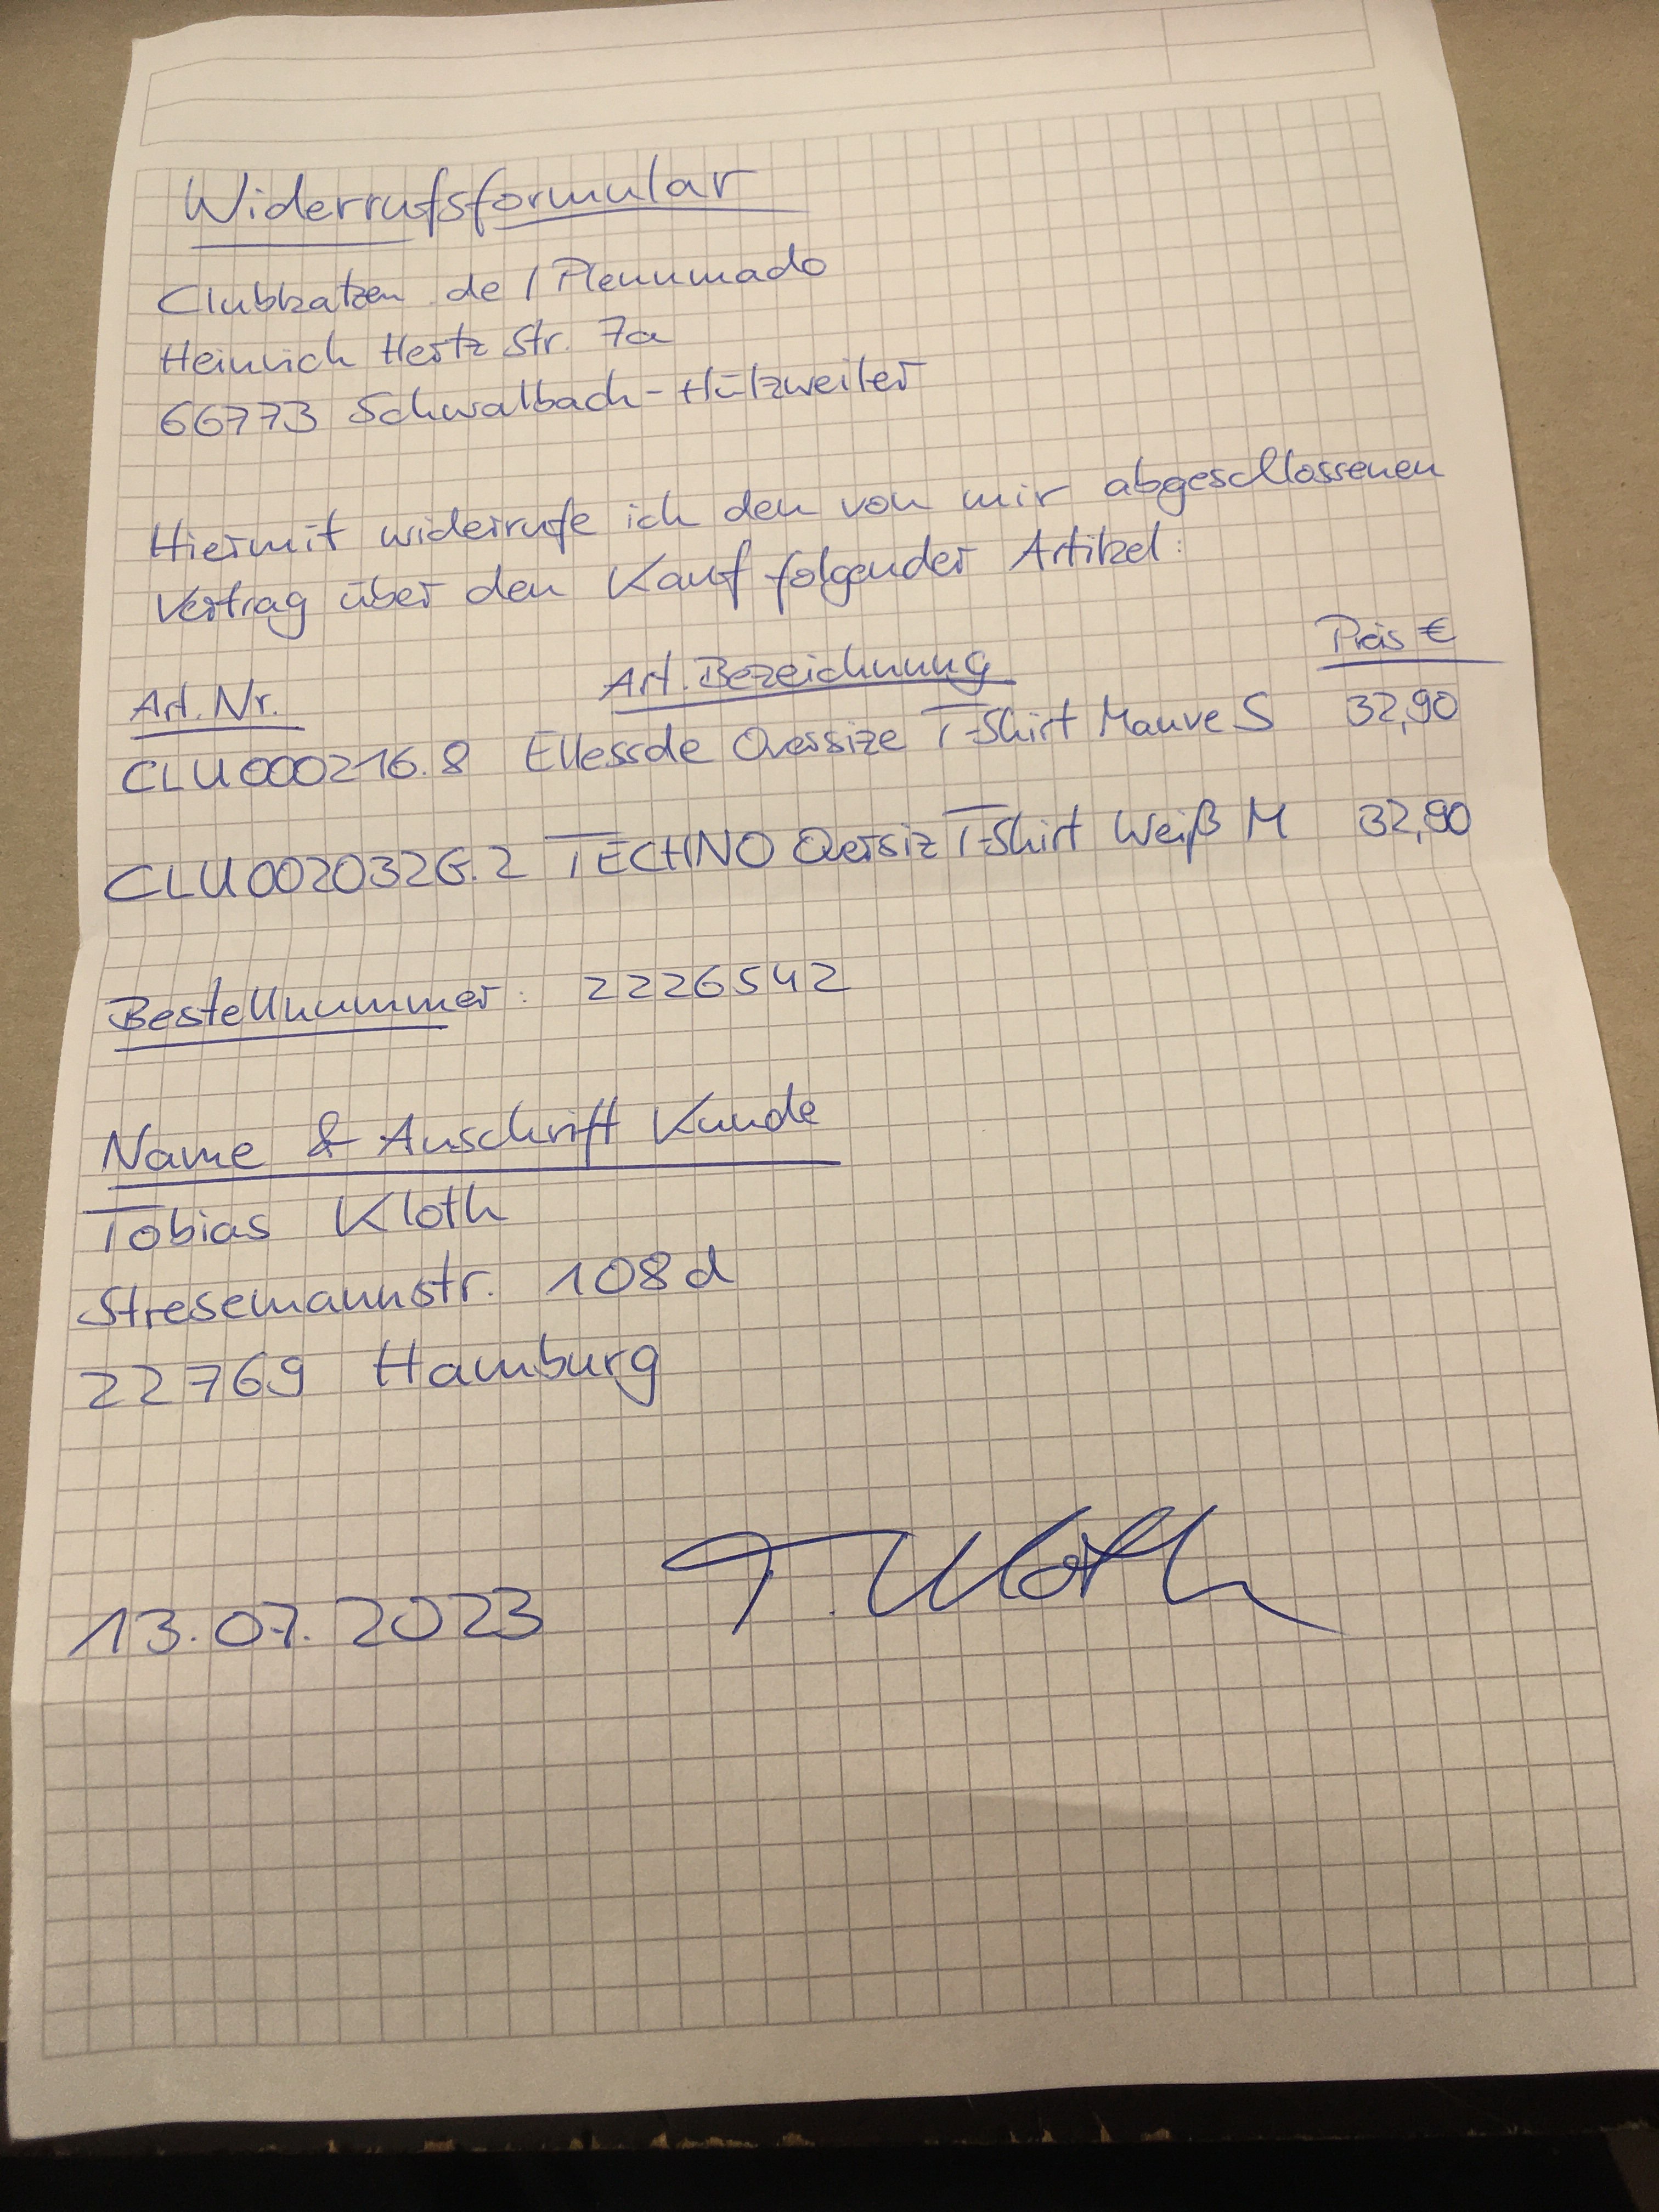 Widerrufsformular
Clubkatzen.de / Plennmado
Heinrich Hertz Str. 7a
66773 Schwalbach-Hülzweiler
Hiermit widerrufe ich den von mir abgeschlossenen
Vertrag über den Kauf folgender Artikel:
Art. Nr. Art. Bezeichnung Preis €
CLU000216.8 Ellessde Oversize T-Shirt Mauve S 32,90
CLU002032G.2 TECHNO Oversiz T-Shirt Weiß M 32,90
Bestellnummer: 2226542
Name & Anschrift Kunde
Tobias Kloth
Stresemannstr. 108d
22769 Hamburg
13.07.2023 T. Kloth